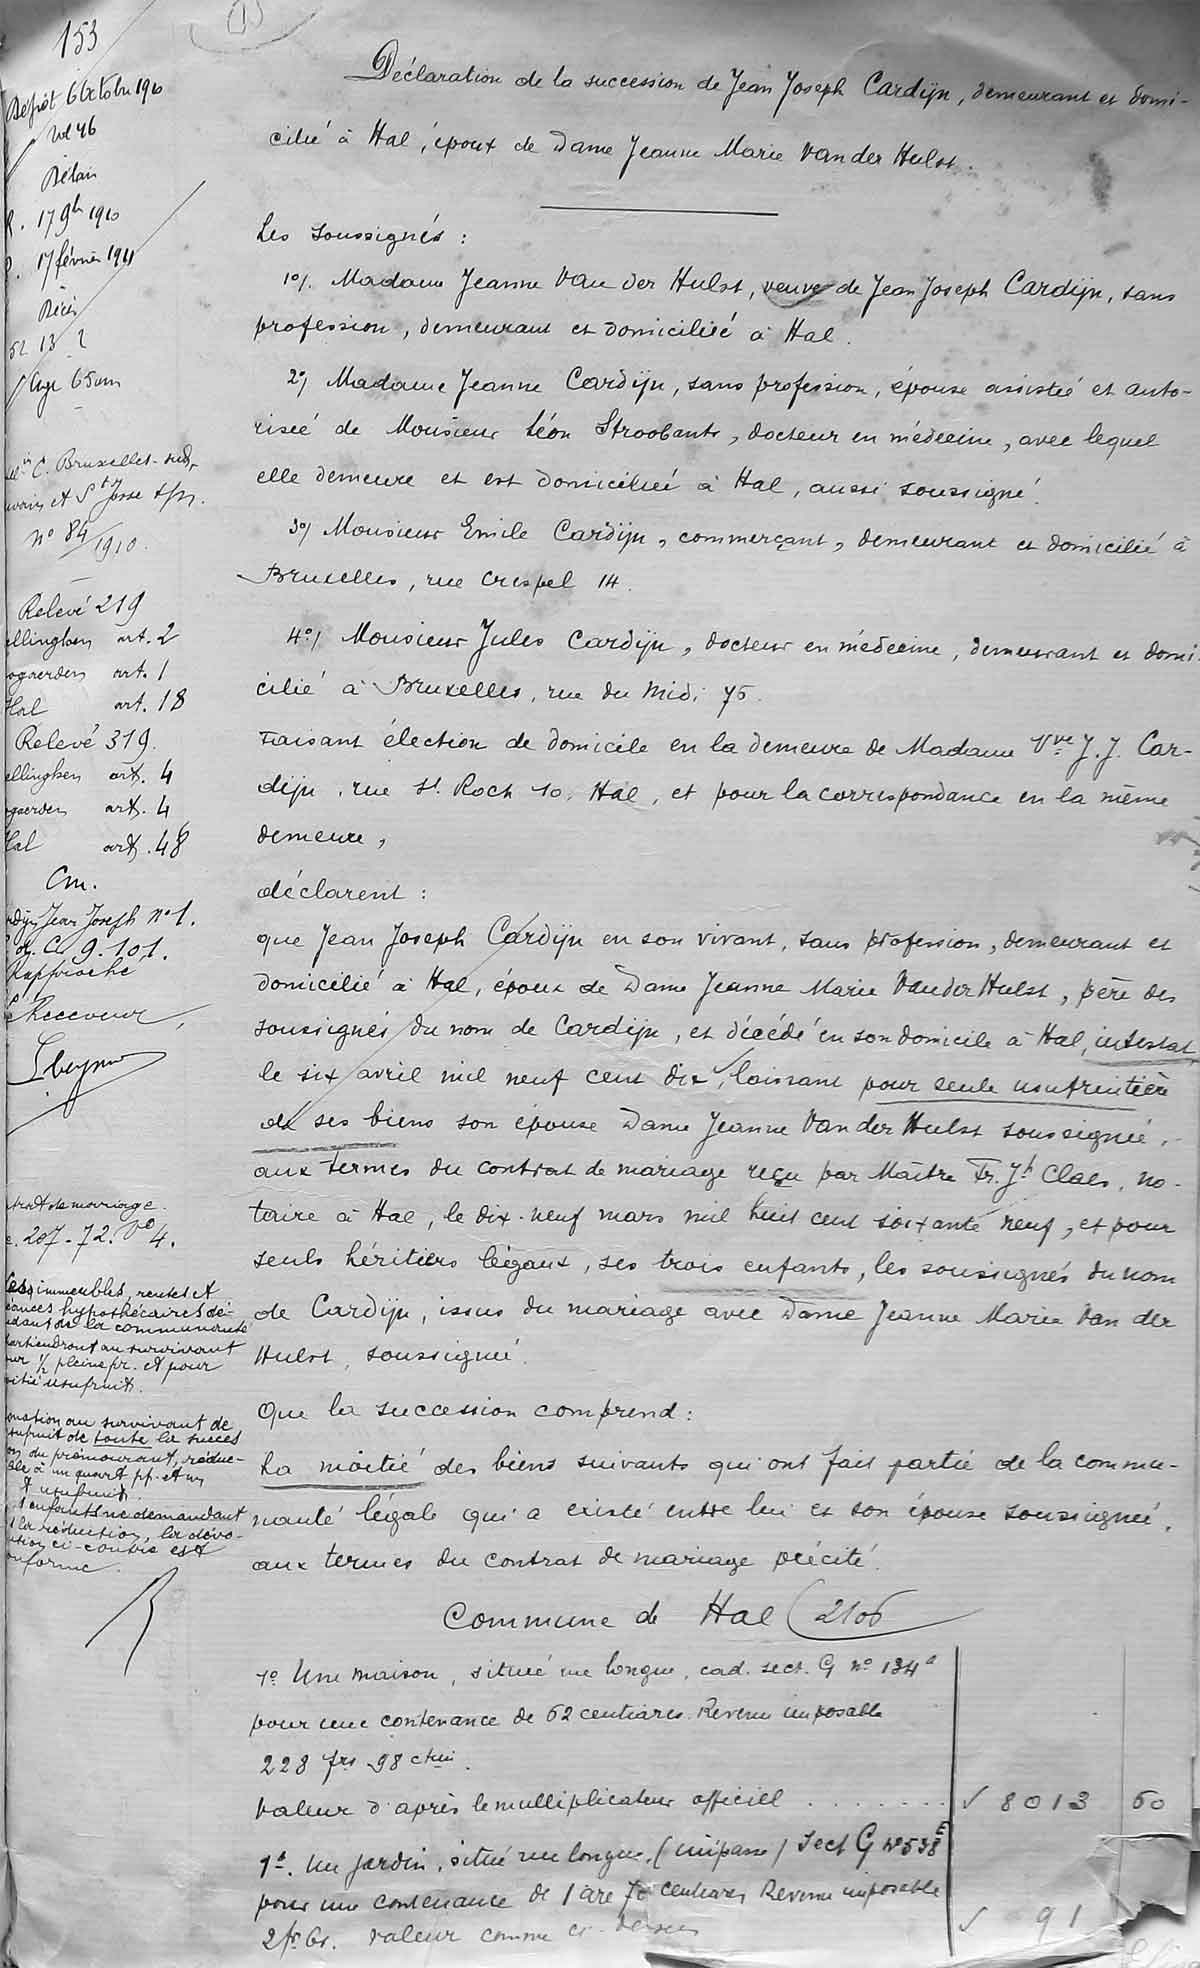 153
Dépôt 6 Octobre 1910
vol 46
Délai
17 9bre 1910
17 février 1911
Décès
52 13
Age 65 ans
C. Bruxelles-sud,
et St Josse t/n.
no 84/1910.
Relevé 219
ellinghen art. 2
ogaerden art. 1
Hal art. 18
Relevé 319.
ellinghen art. 4
gaerden art. 4
Hal art. 48
Cm.
Jean Joseph no 1.
9.101.
Rapproché
Receveur,
de mariage.
207-72. vo 4.
immeubles, rentes et
hypothécaires dé-
de la communauté
au survivant
1/2 pleine pr. et pour
usufruit.
au survivant de
de toute la succes
du prémourant, réduc-
à un quart pp. et un
usufruit.
enfants ne demandant
la réduction, la dévo-
ci-contre est
Déclaration de la succession de Jean Joseph Cardijn, demeurant et domi-
cilié à Hal, époux de Dame Jeanne Marie Van der Hulst.
Les soussignés :
1o/. Madame Jeanne Van der Hulst, veuve de Jean Joseph Cardijn, sans
profession, demeurant et domiciliée à Hal.
2o/ Madame Jeanne Cardijn, sans profession, épouse assistée et auto-
risée de Monsieur Léon Stroobants, docteur en médecine, avec lequel
elle demeure et est domiciliée à Hal, aussi soussigné.
3o/ Monsieur Emile Cardijn, commerçant, demeurant et domicilié à
Bruxelles, rue Crespel 14.
4o/ Monsieur Jules Cardijn, docteur en médecine, demeurant et domi-
cilié à Bruxelles, rue du Midi 75.
Faisant élection de domicile en la demeure de Madame Vve J. J. Car-
dijn, rue St. Roch 10, Hal, et pour la correspondance en la même
demeure,
déclarent :
que Jean Joseph Cardijn en son vivant, sans profession, demeurant et
domicilié à Hal, époux de Dame Jeanne Marie Van der Hulst, père des
soussignés du nom de Cardijn, et décédé en son domicile à Hal, intestat,
le six avril mil neuf cent dix, laissant pour seule usufruitière
de ses biens son épouse Dame Jeanne Van der Hulst soussignée,
aux termes du contrat de mariage reçu par Maître Fr. Jh Claes, no-
taire à Hal, le dix-neuf mars mil huit cent soixante neuf, et pour
seuls héritiers légaux, ses trois enfants, les soussignés du nom
de Cardijn, issus du mariage avec Dame Jeanne Marie Van der
Hulst, soussignée.
Que la succession comprend :
La moitié des biens suivants qui ont fait partie de la commu-
nauté légale qui a existé entre lui et son épouse soussignée,
aux termes du contrat de mariage précité.
Commune de Hal (2106
1o Une maison, située rue longue, cad. sect. G no 134a
pour une contenance de 62 centiares. Revenu imposable
228 frs 98 ctmes.
Valeur d'après le multiplicateur officiel ........ 8013 60
1a. Un jardin, situé rue longue, (impasse) Sect G No 538E
pour une contenance de 1 are 70 centiares Revenu imposable
2 fr 61. Valeur comme ci-dessus 91